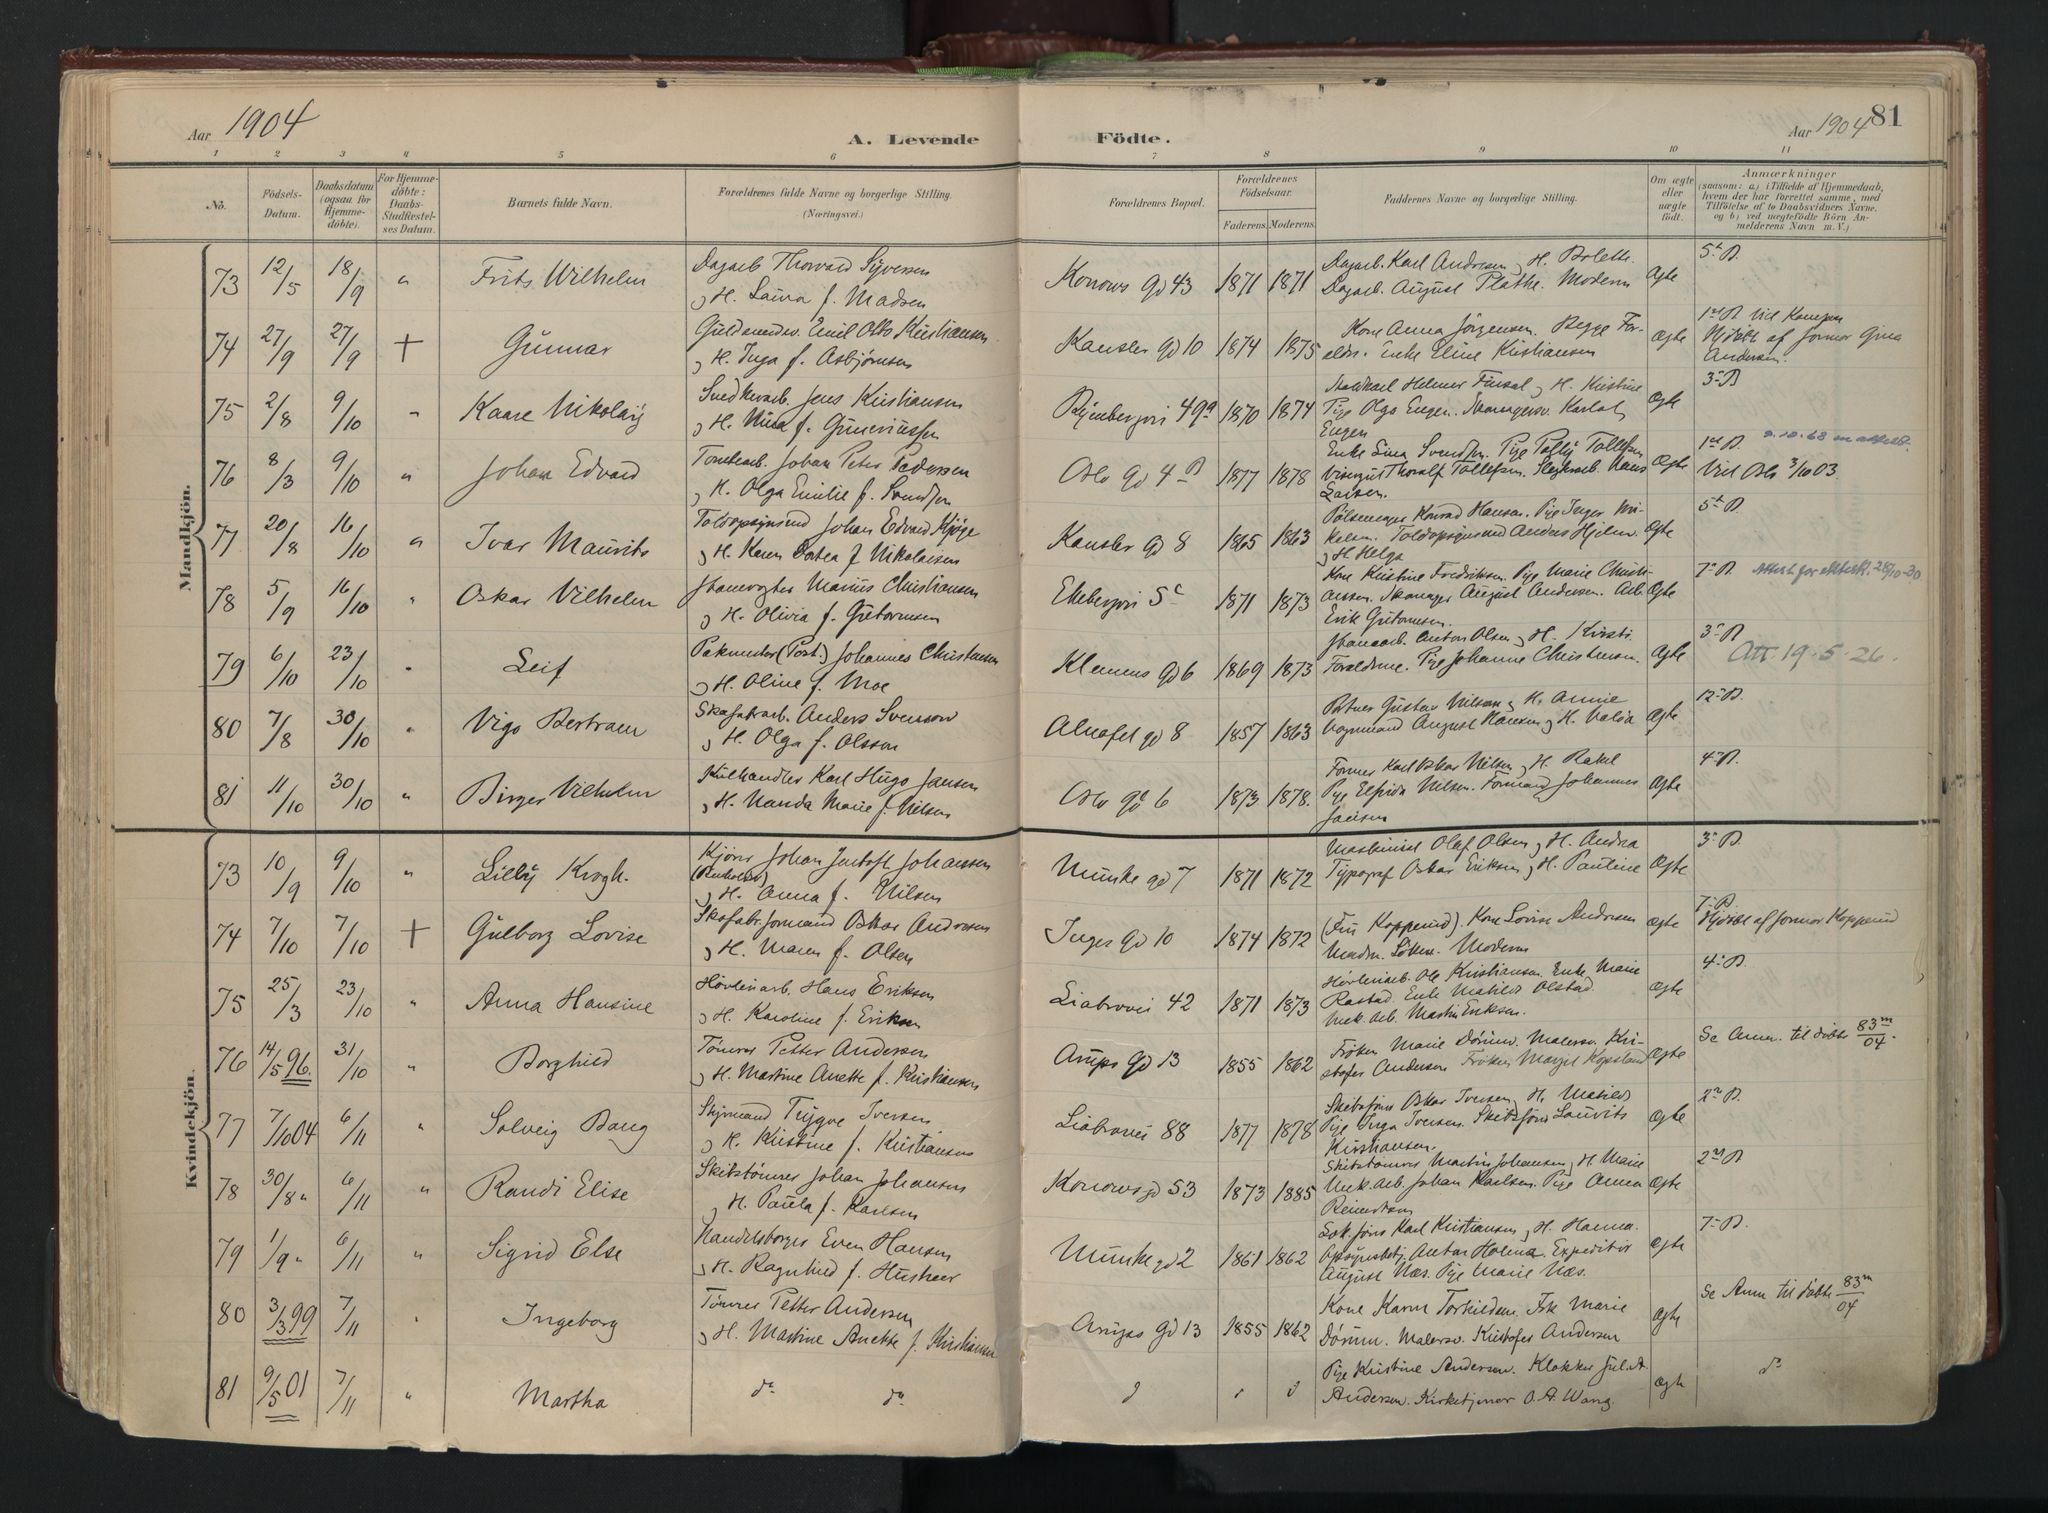 Aar 1904
A. Levende Födte.
Aar 1904
81
1 2 3 4 5 6 7 8 9 10 11
No.
Födsels-
Datum.
Daabsdatum
(ogsaa for
Hjemme-
döbte).
For Hjemme-
döbte:
Daabs-
Stadfæstel-
ses Datum.
Barnets fulde Navn.
Forældrenes fulde Navne og borgerlige Stilling.
(Næringsvei.)
Forældrenes Bopæl.
Forældrenes
Födselsaar.
Faderens. Moderens.
Faddernes Navne og borgerlige Stilling.
Om ægte
eller
uægte
födt.
Anmærkninger
(saasom: a) i Tilfælde af Hjemmedaab,
hvem der har forrettet samme, med
Tilföielse af to Daabsvidners Navne.
og b) ved uægtefödte Börn An-
melderens Navn m. V.)
Mandkjön.
73 12/5 18/9 " Frits Wilhelm
Dagarb. Thorvald Syversen
og H. Laura f. Madsen
Konows gd 43 1871 1871
Dagarb. Karl Andresen og H. Bolette.
Dagarb. August Plathe. Moderen
Ægte
5t. B.
74 27/9 27/9 + Gunnar
Guldsmedsv. Emil Otto Kristiansen
og H. Inga f. Asbjørnsen
Kansler gd 10 1874 1875
Kone Anna Jörgensen. Begge For-
eldre. Enke Eline Kristiansen
Ægte
Hjdøbt af Jormor Gina
Andersen.
75 2/8 9/10 " Kaare Nikolay
Snedkerarb. Jens Kristiansen
og H. Nina f. Guneriussen
49a 1870 1874
og H. Kristine
Pige Olga Engen.
Engen
Ægte
3. B
76 8/3 9/10 " Johan Edvard
Johan Peter Pedersen
og H. Olga Emilie f. Svendsen
Oslo gd 4 B 1877 1878
Enke Lina Svendsen. Pige Tolly Tollefsen
Visergut Thoralf Tollefsen. Hans
Larsen.
Ægte
1st B.
Viet Oslo 3/10 03.
77 20/8 16/10 " Ivar Maurits
Toldopsynsmd Johan Edvard Kjöge
og H. Karen Dortea f. Nikolaisen
Kansler gd 8 1865 1863
Pölsemager Konrad Hansen. Pige Inger Mi-
kelsen. Toldopsynsmd Anders Hjelm
og H. Helga
Ægte
5t. B.
78 5/9 16/10 " Oskar Vilhelm
Marius Christiansen
og H. Olivia f. Guttormsen
Ekebergvei 5c 1871 1873
Kone Kristine Fredriksen. Pige Marie Christi-
ansen. Skomager August Andersen. Arb.
Erik Guttormsen.
Ægte
7. B. Attest for 28/10-30
79 6/10 23/10 " Leif
Pakmester (Port.) Johannes Christensen
og H. Oline f. Moe
Klemens gd 6 1869 1873
Anton Olsen og H. Kirsti.
Forældrene. Pige Johanne Christensen.
Ægte
3. B
Att. 19-5-26.
80 7/8 30/10 " Vigo Bertram
Skofabarb. Anders Svensson
og H. Olga f. Olsson
Alnafet gd 8 1857 1863
Gustav Nilsen og H. Annie
Vognmand August Hansen og H. Valda
Ægte
12. B.
81 11/10 30/10 " Birger Vilhelm
Kulhandler Karl Hugo Jansen
og H. Nanda Marie f. Nilsen
Oslo gd 6 1873 1878.
Former Karl Oskar Nilsen og H. Rakel
Pige Elfrida Nilsen. Formand Johannes
Jansen
Ægte
4. B.
Kvindekjön.
73 10/9 9/10 " Lilly Krogh.
Johan Jentoft Johansen
og H. Anna f. Nilsen
Munke gd 7 1871 1872
Maskinist Olaf Olsen og H. Andrea
Typograf Oskar Eriksen og H. Pauline
Ægte
3. B.
74 7/10 7/10 + Gulborg Lovise
Skofabr.formand Oskar Andresen
og H. Maren f. Olsen
Inges gd 10 1874 1872
(Fru Kopperud). Kone Lovise Andresen
Moderen
Ægte
7. B.
Hjdöbt af Jormor Kopperud
75 25/3 23/10 " Anna Hansine
Høvleriarb. Hans Eriksen
og H. Karoline f. Eriksen
Liabrovei 42 1871 1873
Høvleriarb. Ole Kristiansen. Enke Marie
Rastad. Enke Matilde Olstad.
Mek. Arb. Martin Eriksen.
Ægte
4. B.
76 14/5 96. 31/10 " Borghild
Tömrer Petter Andersen
og H. Martine Anette f. Kristiansen
Arups gd 13 1855 1862
Fröken Marie Dörum. Malersv. Kri-
stofer Andersen Fröken Margit Kopsland
Ægte
Se Anm. til döbte 83m/04.
77 7/10 04 6/11 " Solveig Bang
Styrmand Trygve Iversen
og H. Kristine f. Kristiansen
Liabrovei 88 1877 1878
Skibsförer Oskar Iversen og H. Matilde
Pige Inga Iversen. Skibsförer Lauritz
Kristiansen.
Ægte
2. B.
78 30/8 " 6/11 " Randi Elise
Skibstömrer Johan Johansen
og H. Paula f. Karlsen
Konows gd 53 1873 1885
Skibstömrer Martin Johansen og H. Marie
Mek. Arb. Johan Karlsen. Pige Anna
Ægte
2. B
79 1/9 " 6/11 " Sigrid Else
Handelsborger Even Hansen
og H. Ragnhild f. Husheer
Munke gd 2 1861 1862
Lok.förer Karl Kristiansen og H. Hanna.
Opsynsbetj. Anton Holene. Expeditör
August Næs. Pige Marie Næs.
Ægte
7. B.
80 3/3 99 7/11 " Ingeborg
Tömrer Petter Andersen
og H. Martine Anette f. Kristiansen
Arups gd 13 1855 1862
Kone Karen Torkildsen. Frk. Marie
Dörum. Malersv. Kristofer Andersen
Ægte
Se Anm til döbte 83m/04
81 9/5 01 7/11 " Martha
do do
Pige Kristine Andersen. Klokker Jul. A.
Andersen. Kirketjener O. A. Wang.
Ægte
do